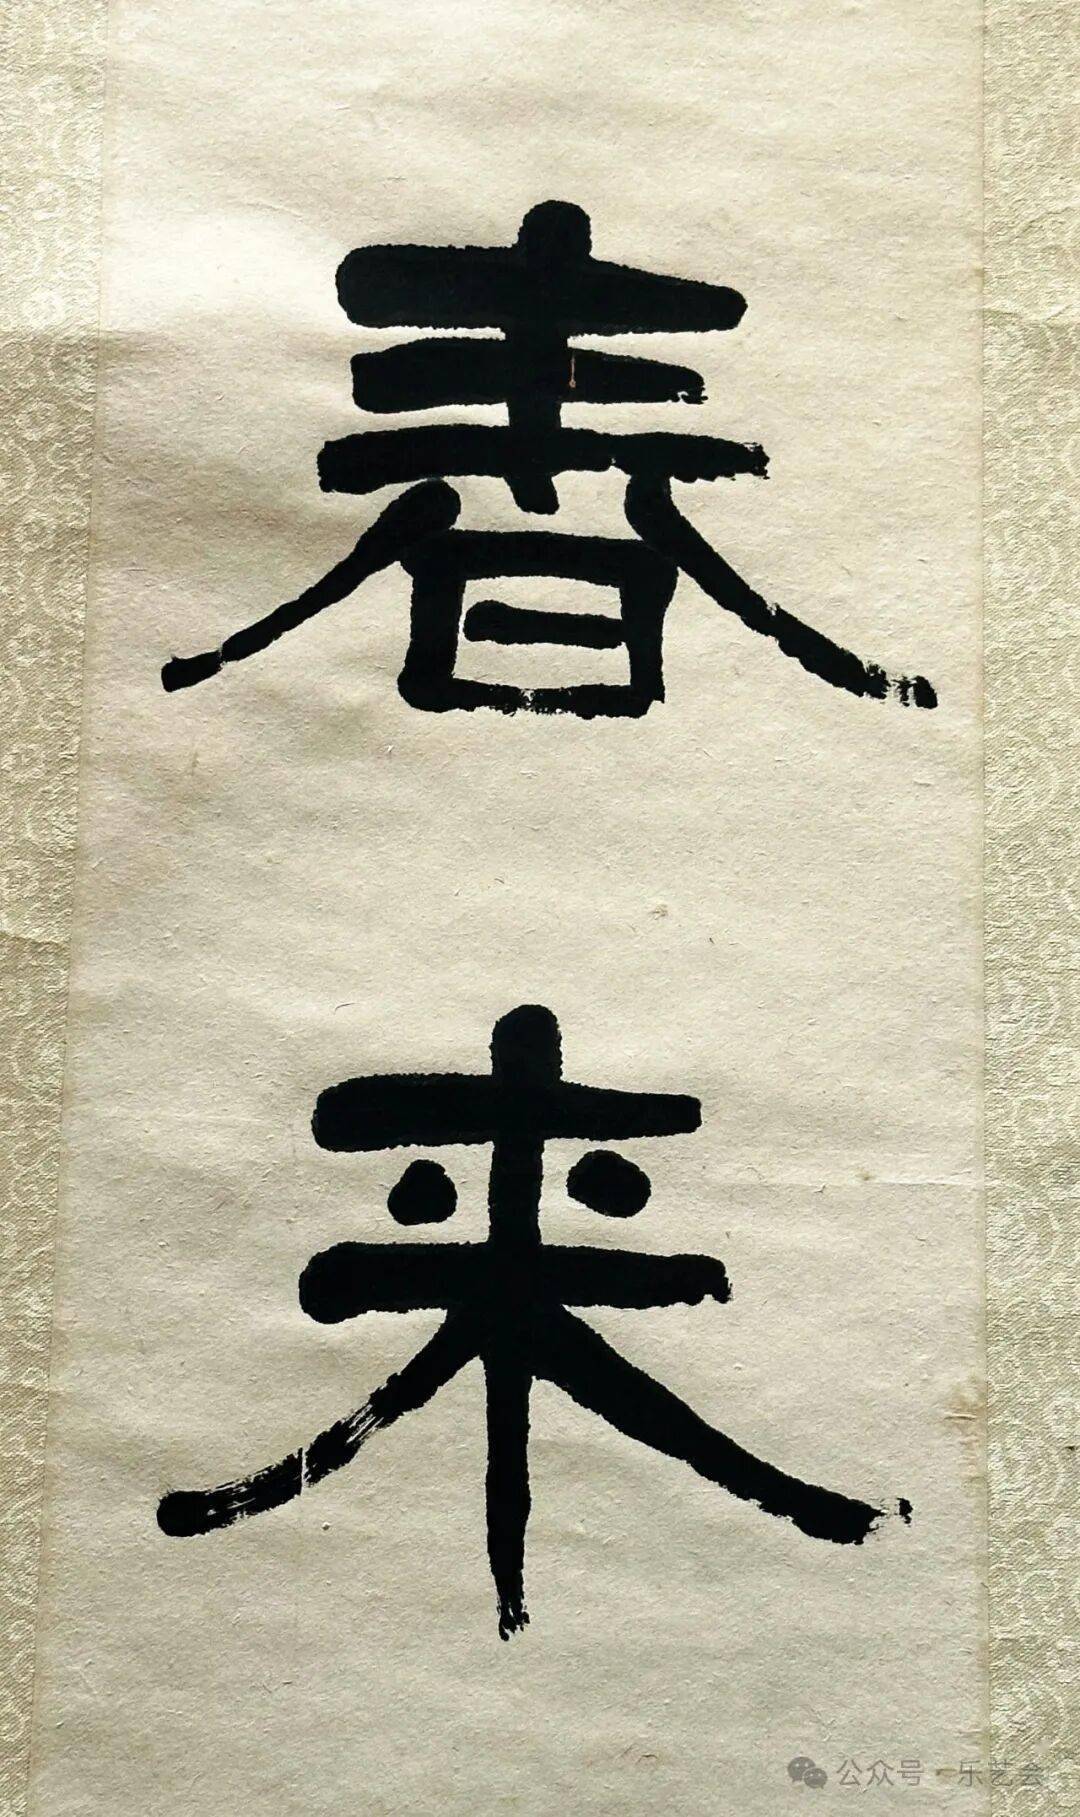 春
来
公众号·乐艺会